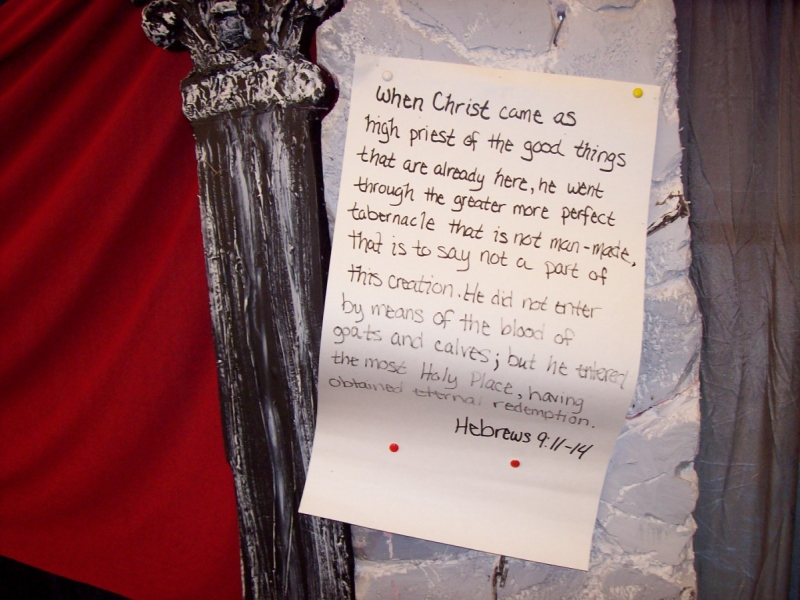 When Christ came as
high priest of the good things
that are already here, he went
through the greater more perfect
tabernacle that is not man-made,
that is to say not a part of
this creation. He did not enter
by means of the blood of
goats and calves; but he entered
the most Holy Place, having
obtained eternal redemption.
Hebrews 9:11-14